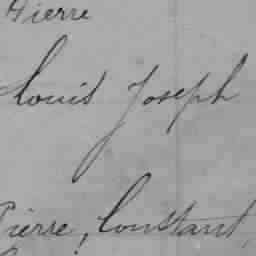 Pierre
Louis Joseph
Pierre, Constant,